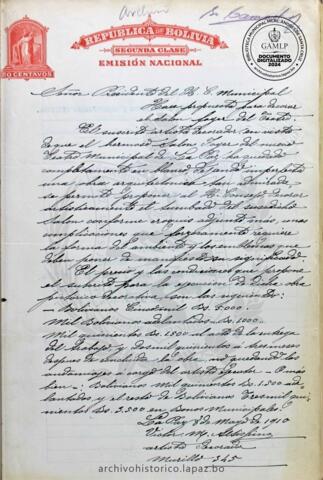 REPUBLICA DE BOLIVIA
SEGUNDA CLASE
EMISIÓN NACIONAL
50 CENTAVOS
BIBLIOTECA MUNICIPAL MCAL. ANDRÉS DE SANTA CRUZ
GAMLP
DOCUMENTO DIGITALIZADO
2024
Señor Presidente del H. C. Municipal
Hace propuesta para decorar
el salon foyer del Teatro.
El suscrito artista decorador en vista
de que el hermoso Salon foyer del nuevo
Teatro Municipal de La Paz ha quedado
completamente en blanco, siendo
una obra arquitectonica
se permite proponer al H. Concejo decorar
el
salon conforme croquis adjunto mas unas
que requiere
la forma del ambiente y los emblemas que
deben poner de manifiesto su significado
El precio y las condiciones que propone
el suscrito para la ejecucion de dicha obra
pictorico decorativa son las siguientes:
Bolivianos Cincomil Bs 5.000.
Mil Bolivianos adelantados Bs. 1000.
Mil quinientos Bs. 1.500 al de la entrega
del trabajo y dosmil quinientos a tres meses
despues de concluida la obra, no quedando los
andamiajes a cargo del artista pintor. O mas
bien: Bolivianos Mil quinientos Bs. 1.500 ad-
lantados y el resto de Bolivianos Tresmil qui-
nientos Bs 3.500 en Bonos Municipales.
La Paz 8 de Mayo de 1910
Victor M.
artista Decorador
Murillo 345
archivohistorico.lapaz.bo